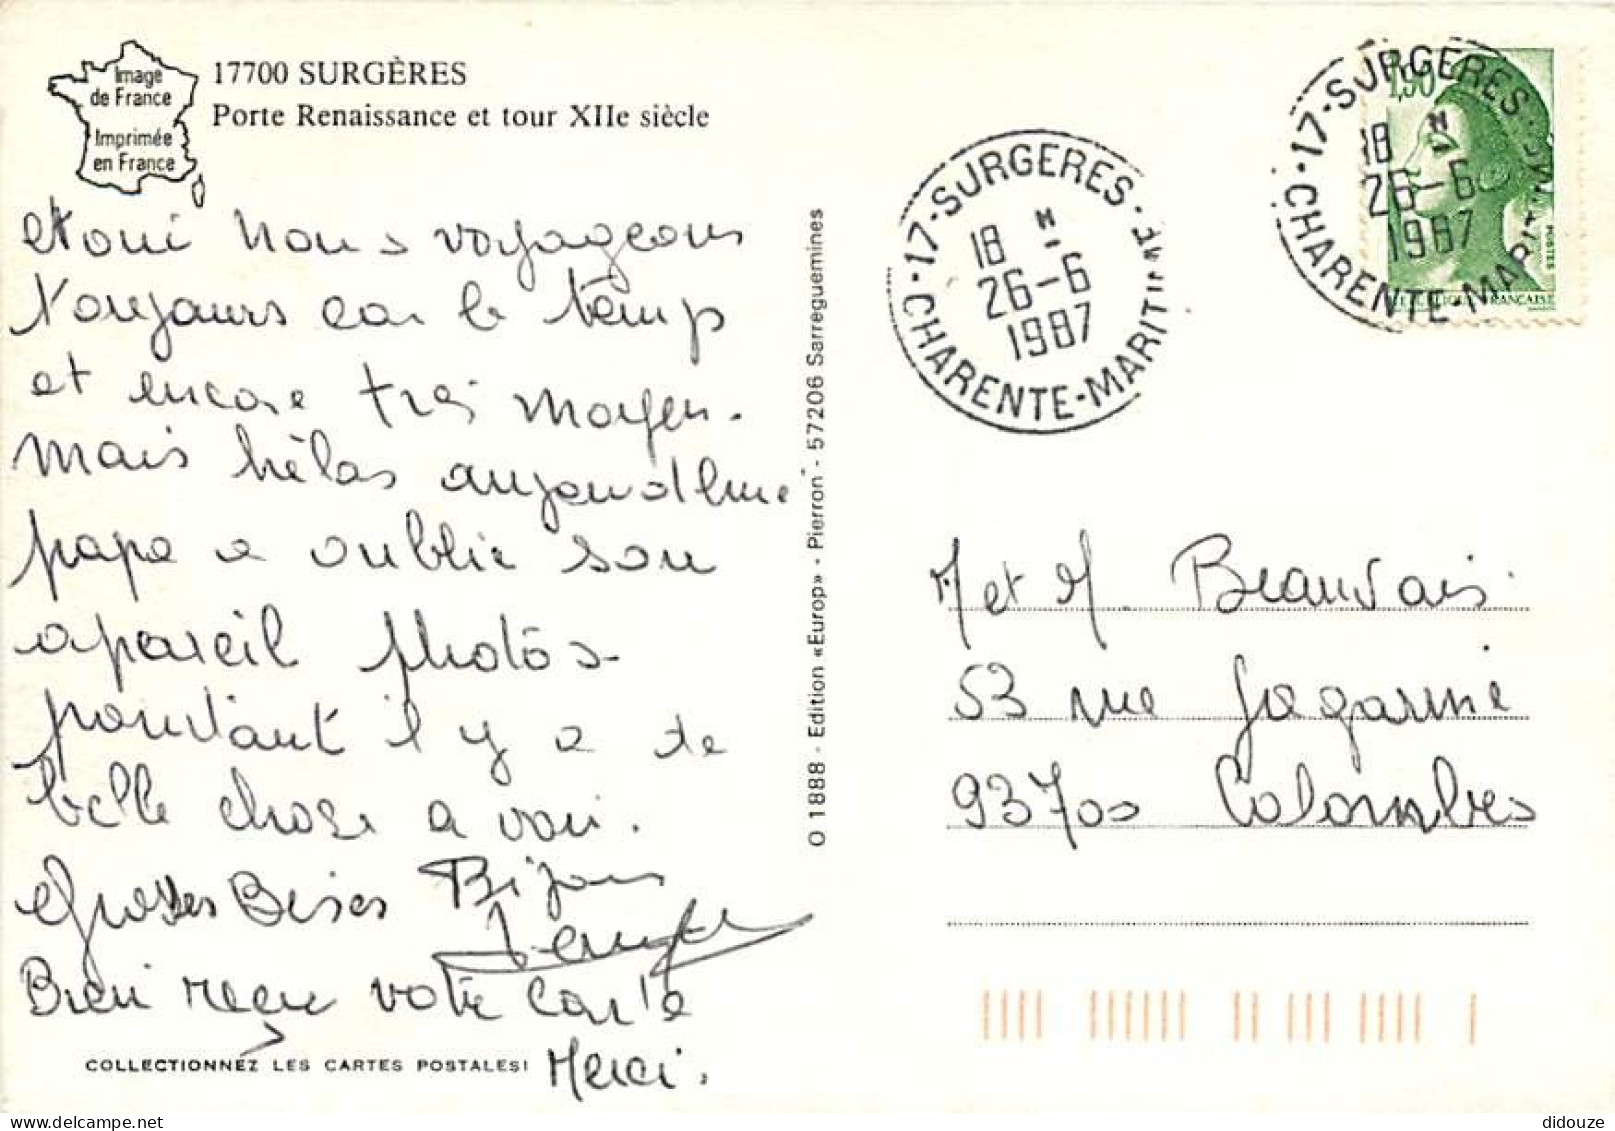 Image
de France
Imprimée
en France
17700 SURGÈRES
Porte Renaissance et tour XIIe siècle
et oui nous voyageons
toujours car le temps
et encore très moyen.
mais hélas aujourdhui
papa a oublié son
apareil photos
pourtant il y a de
belle chose a voir.
Grosses Bises Bijous
Bien reçu votre carte
Merci.
COLLECTIONNEZ LES CARTES POSTALES!
O 1888 - Edition «Europ» - Pierron - 57206 Sarreguemines
17-SURGERES
18 H
26-6
1987
CHARENTE-MARITIME
17-SURGERES
18 H
26-6
1987
CHARENTE-MARITIME
1,90
POSTES
REPUBLIQUE FRANÇAISE
M et M. Beauvais
53 rue Jagarine
93700 Colombes
didouze